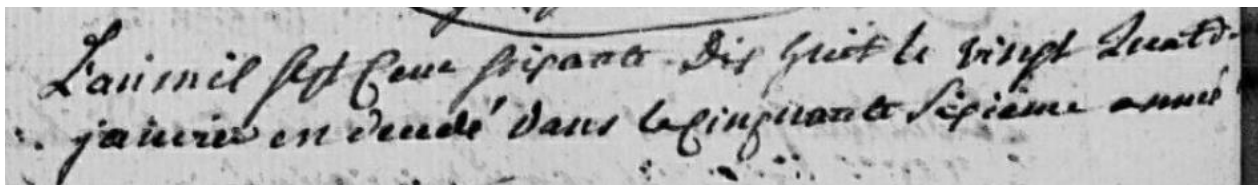 L'an mil sept Cent soixante Dix huit le vingt Quatr
janvier en decedé dans la Cinquante Sixieme année